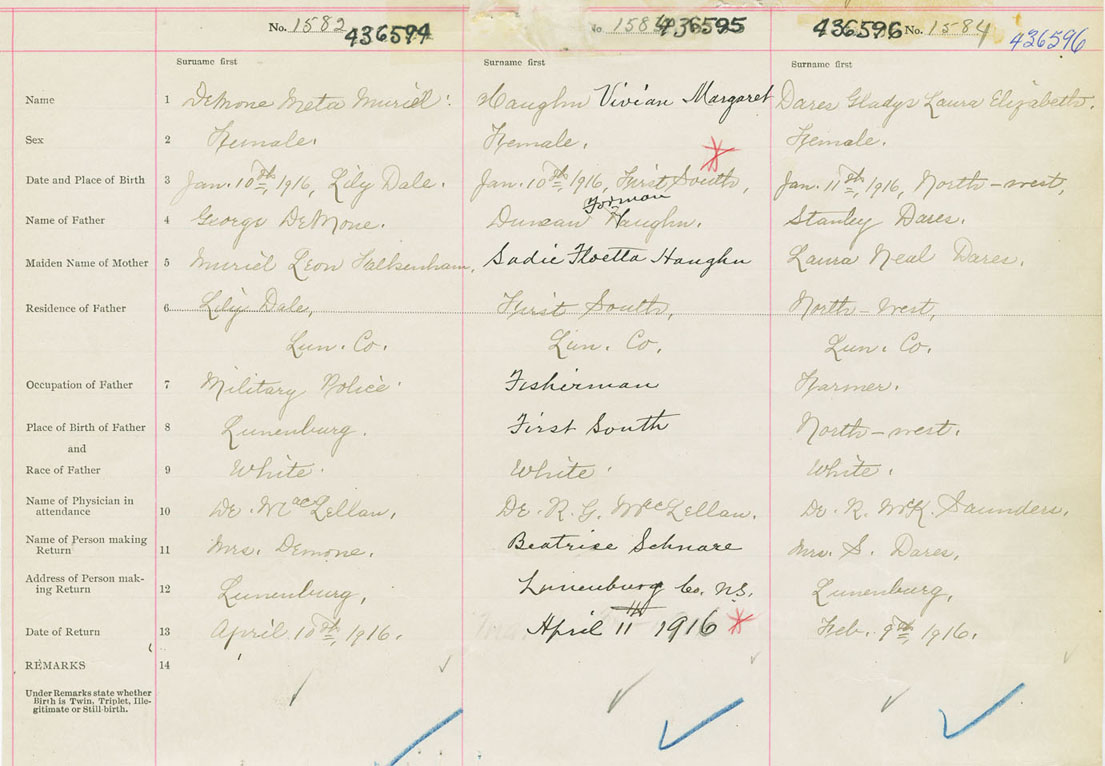 No. 1582 436594 No 158 436595 436596 No. 1584 436596
Surname first Surname first Surname first
Name 1 DeMone Meta Muriel. Haughn Vivian Margaret Dares Gladys Laura Elizabeth.
Sex 2 Female. Female. Female.
Date and Place of Birth 3 Jan. 10th, 1916, Lily Dale. Jan. 10th, 1916, First South, Jan. 11th, 1916, North-west,
Name of Father 4 George DeMone. Duncan Haughn. Stanley Dares.
Maiden Name of Mother 5 Muriel Leon Falkenham, Sadie Floetta Haughn Laura Neal Dares.
Residence of Father 6 Lily Dale, First South, North-west,
Lun. Co. Lun. Co. Lun. Co.
Occupation of Father 7 Military Police. Fisherman Farmer.
Place of Birth of Father 8 Lunenburg. First South North-west.
and
Race of Father 9 White. White. White.
Name of Physician in attendance 10 Dr. MacLellan. Dr. R. G. McLellan. Dr. R. McK. Saunders.
Name of Person making Return 11 Mrs. Demone. Beatrice Schnare Mrs. S. Dares,
Address of Person mak-ing Return 12 Lunenburg, Lunenburg Co. N.S. Lunenburg,
Date of Return 13 April 10th, 1916. April 11th 1916 Feb. 9th, 1916.
REMARKS 14
Under Remarks state whether
Birth is Twin, Triplet, Ille-
gitimate or Still-birth.